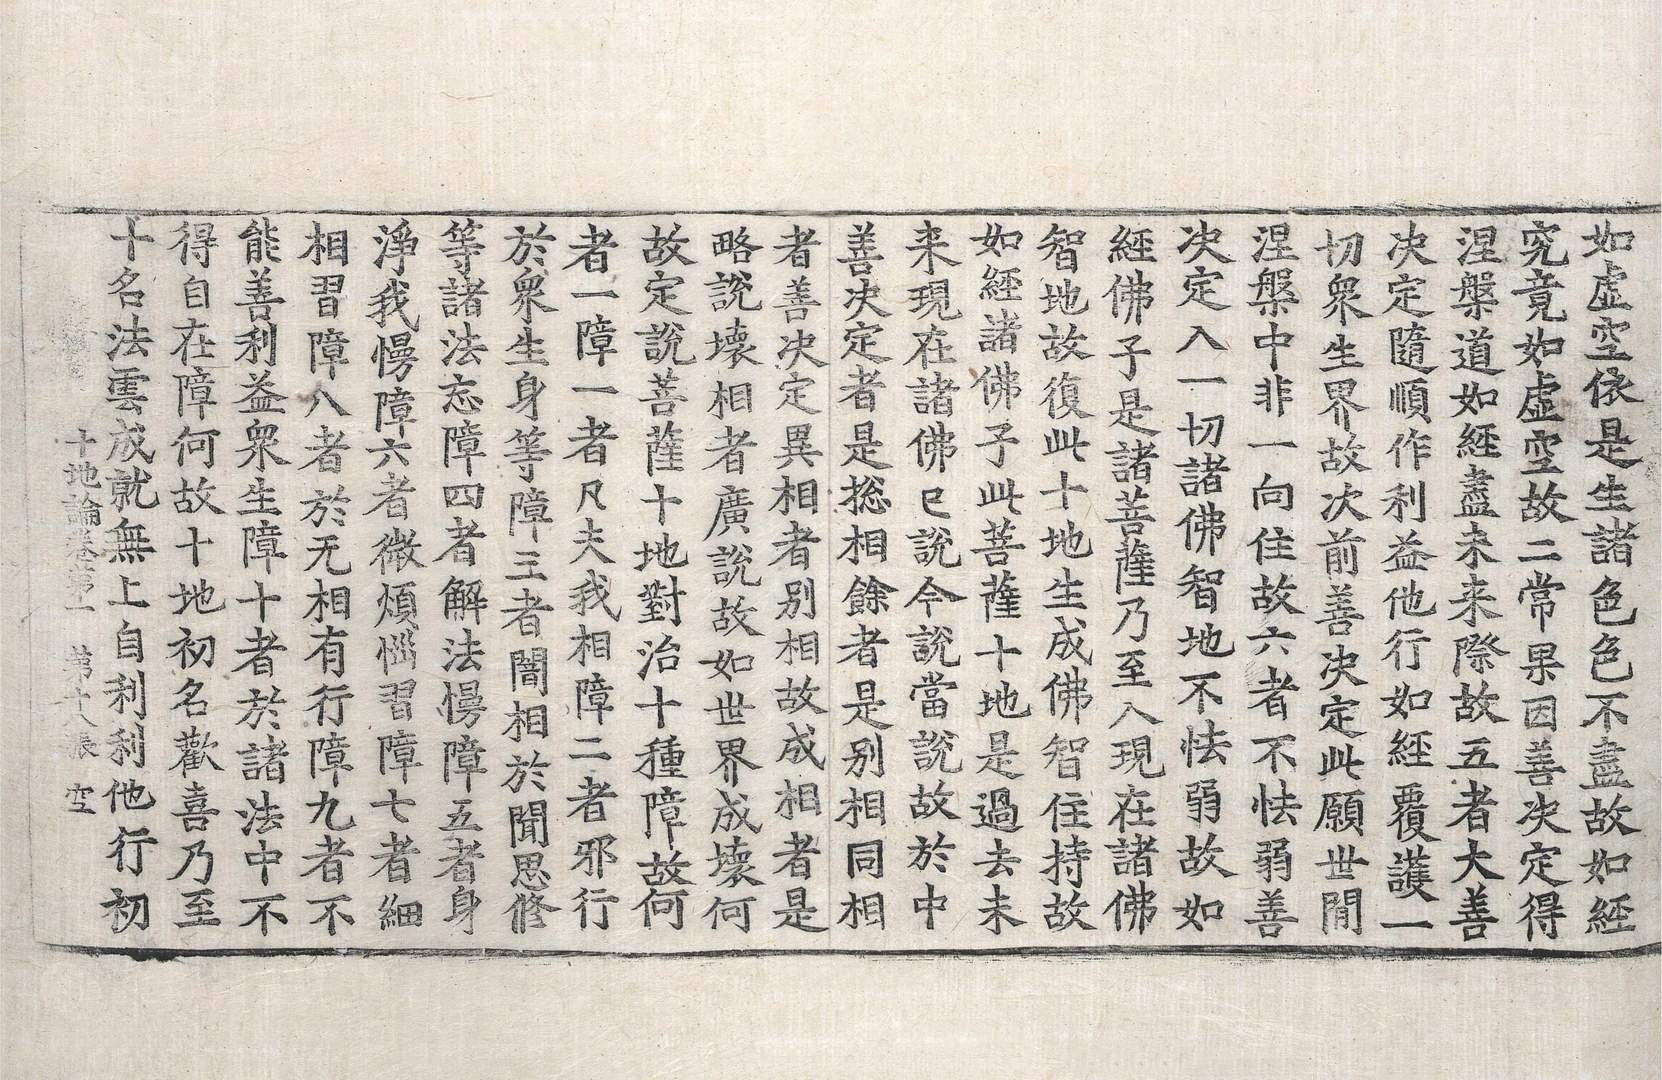 如虛空依是生諸色色不盡故如經
究竟如虛空故二常果因善决定得
涅槃道如經盡未来際故五者大善
决定隨順作利益他行如經覆護一
切衆生界故次前善决定此願世間
涅槃中非一向住故六者不怯弱善
决定入一切諸佛智地不怯弱故如
經佛子是諸菩薩乃至入現在諸佛
智地故復此十地生成佛智住持故
如經諸佛子此菩薩十地是過去未
来現在諸佛已說今說當說故於中
善决定者是捴相餘者是別相同相
者善决定異相者別相故成相者是
略說壞相者廣說故如世界成壞何
故定說菩薩十地對治十種障故何
者一障一者凡夫我相障二者邪行
於衆生身等障三者闇相於聞思修
等諸法忘障四者解法慢障五者身
淨我慢障六者微煩惱習障七者細
相習障八者於无相有行障九者不
能善利益衆生障十者於諸法中不
得自在障何故十地初名歡喜乃至
十名法雲成就無上自利利他行初
十地論卷第一　第十八張　空